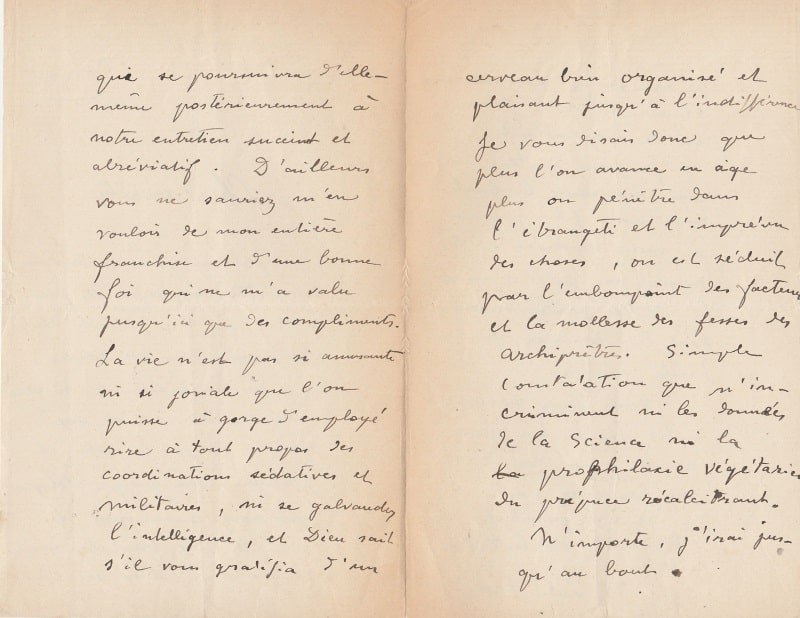 qui se poursuivra d'elle-
même postérieurement à
notre entretien succint et
abréviatif. D'ailleurs
vous ne sauriez m'en
vouloir de mon entière
franchise et d'une bonne
foi qui ne m'a valu
jusqu'ici que des compliments.
La vie n'est pas si amusante
ni si joviale que l'on
puisse à gorge d'employé
rire à tout propos des
coordinations sédatives et
militaires, ni se galvauder
l'intelligence, et Dieu sait
s'il vous gratifia d'un
cerveau bien organisé et
plaisant jusqu'à l'indifférence
Je vous disais donc que
plus l'on avance en âge
plus on pénètre dans
l'étrangeté et l'imprévu
des choses, on est séduit
par l'embompoint des facteurs
et la mollesse des fesses des
archiprêtres. Simple
constatation que n'in-
criminent ni les données
de la Science ni la
la prophilaxie végétarienne
du prépuce récalcitrant.
N'importe, j'irai jus-
qu'au bout.